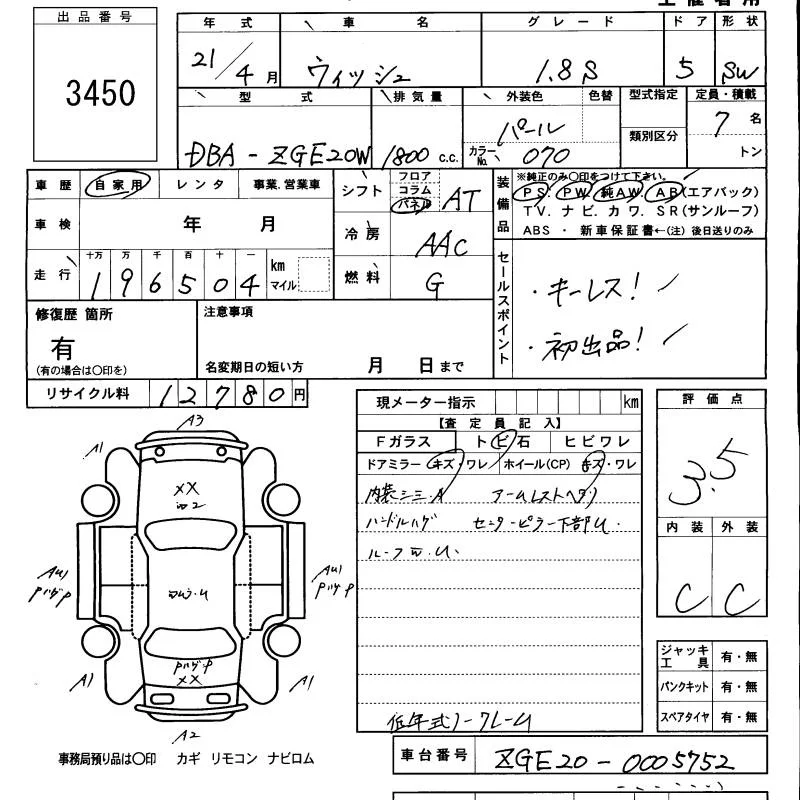 出品番号
3450
年式 車名 グレード ドア 形状
21/4月 ウィッシュ 1.8S 5 SW
型式 排気量 外装色 色替 型式指定 定員・積載
DBA-ZGE20W 1800 c.c. パール 類別区分 7名
カラーNo. 070 トン
車歴 自家用 レンタ 事業.営業車
シフト フロア コラム パネル AT
装備品
※純正のみ〇印をつけて下さい。
PS. PW. 純AW. AB(エアバック)
TV. ナビ. カワ. SR(サンルーフ)
ABS ・ 新車保証書←(注) 後日送りのみ
車検 年 月
冷房 AAC
走行 十万 万 千 百 十 一
196504 km マイル
燃料 G
セールスポイント
・キーレス!
・初出品!
修復歴 箇所
有
(有の場合は〇印を)
注意事項
名変期日の短い方 月 日まで
リサイクル料 12780円
現メーター指示 km
【査定員記入】
Fガラス トビ石 ヒビワレ
ドアミラー キズ・ワレ ホイール(CP) キズ・ワレ
内装シミ.A
ハンドルハゲ センターピラー下部U.
評価点
3.5
内装 外装
C C
A3
A1
XX
A1
A1
XX
A2
ジャッキ工具 有・無
パンクキット 有・無
スペアタイヤ 有・無
事務局預り品は〇印 カギ リモコン ナビロム
車台番号 ZGE20-0005752